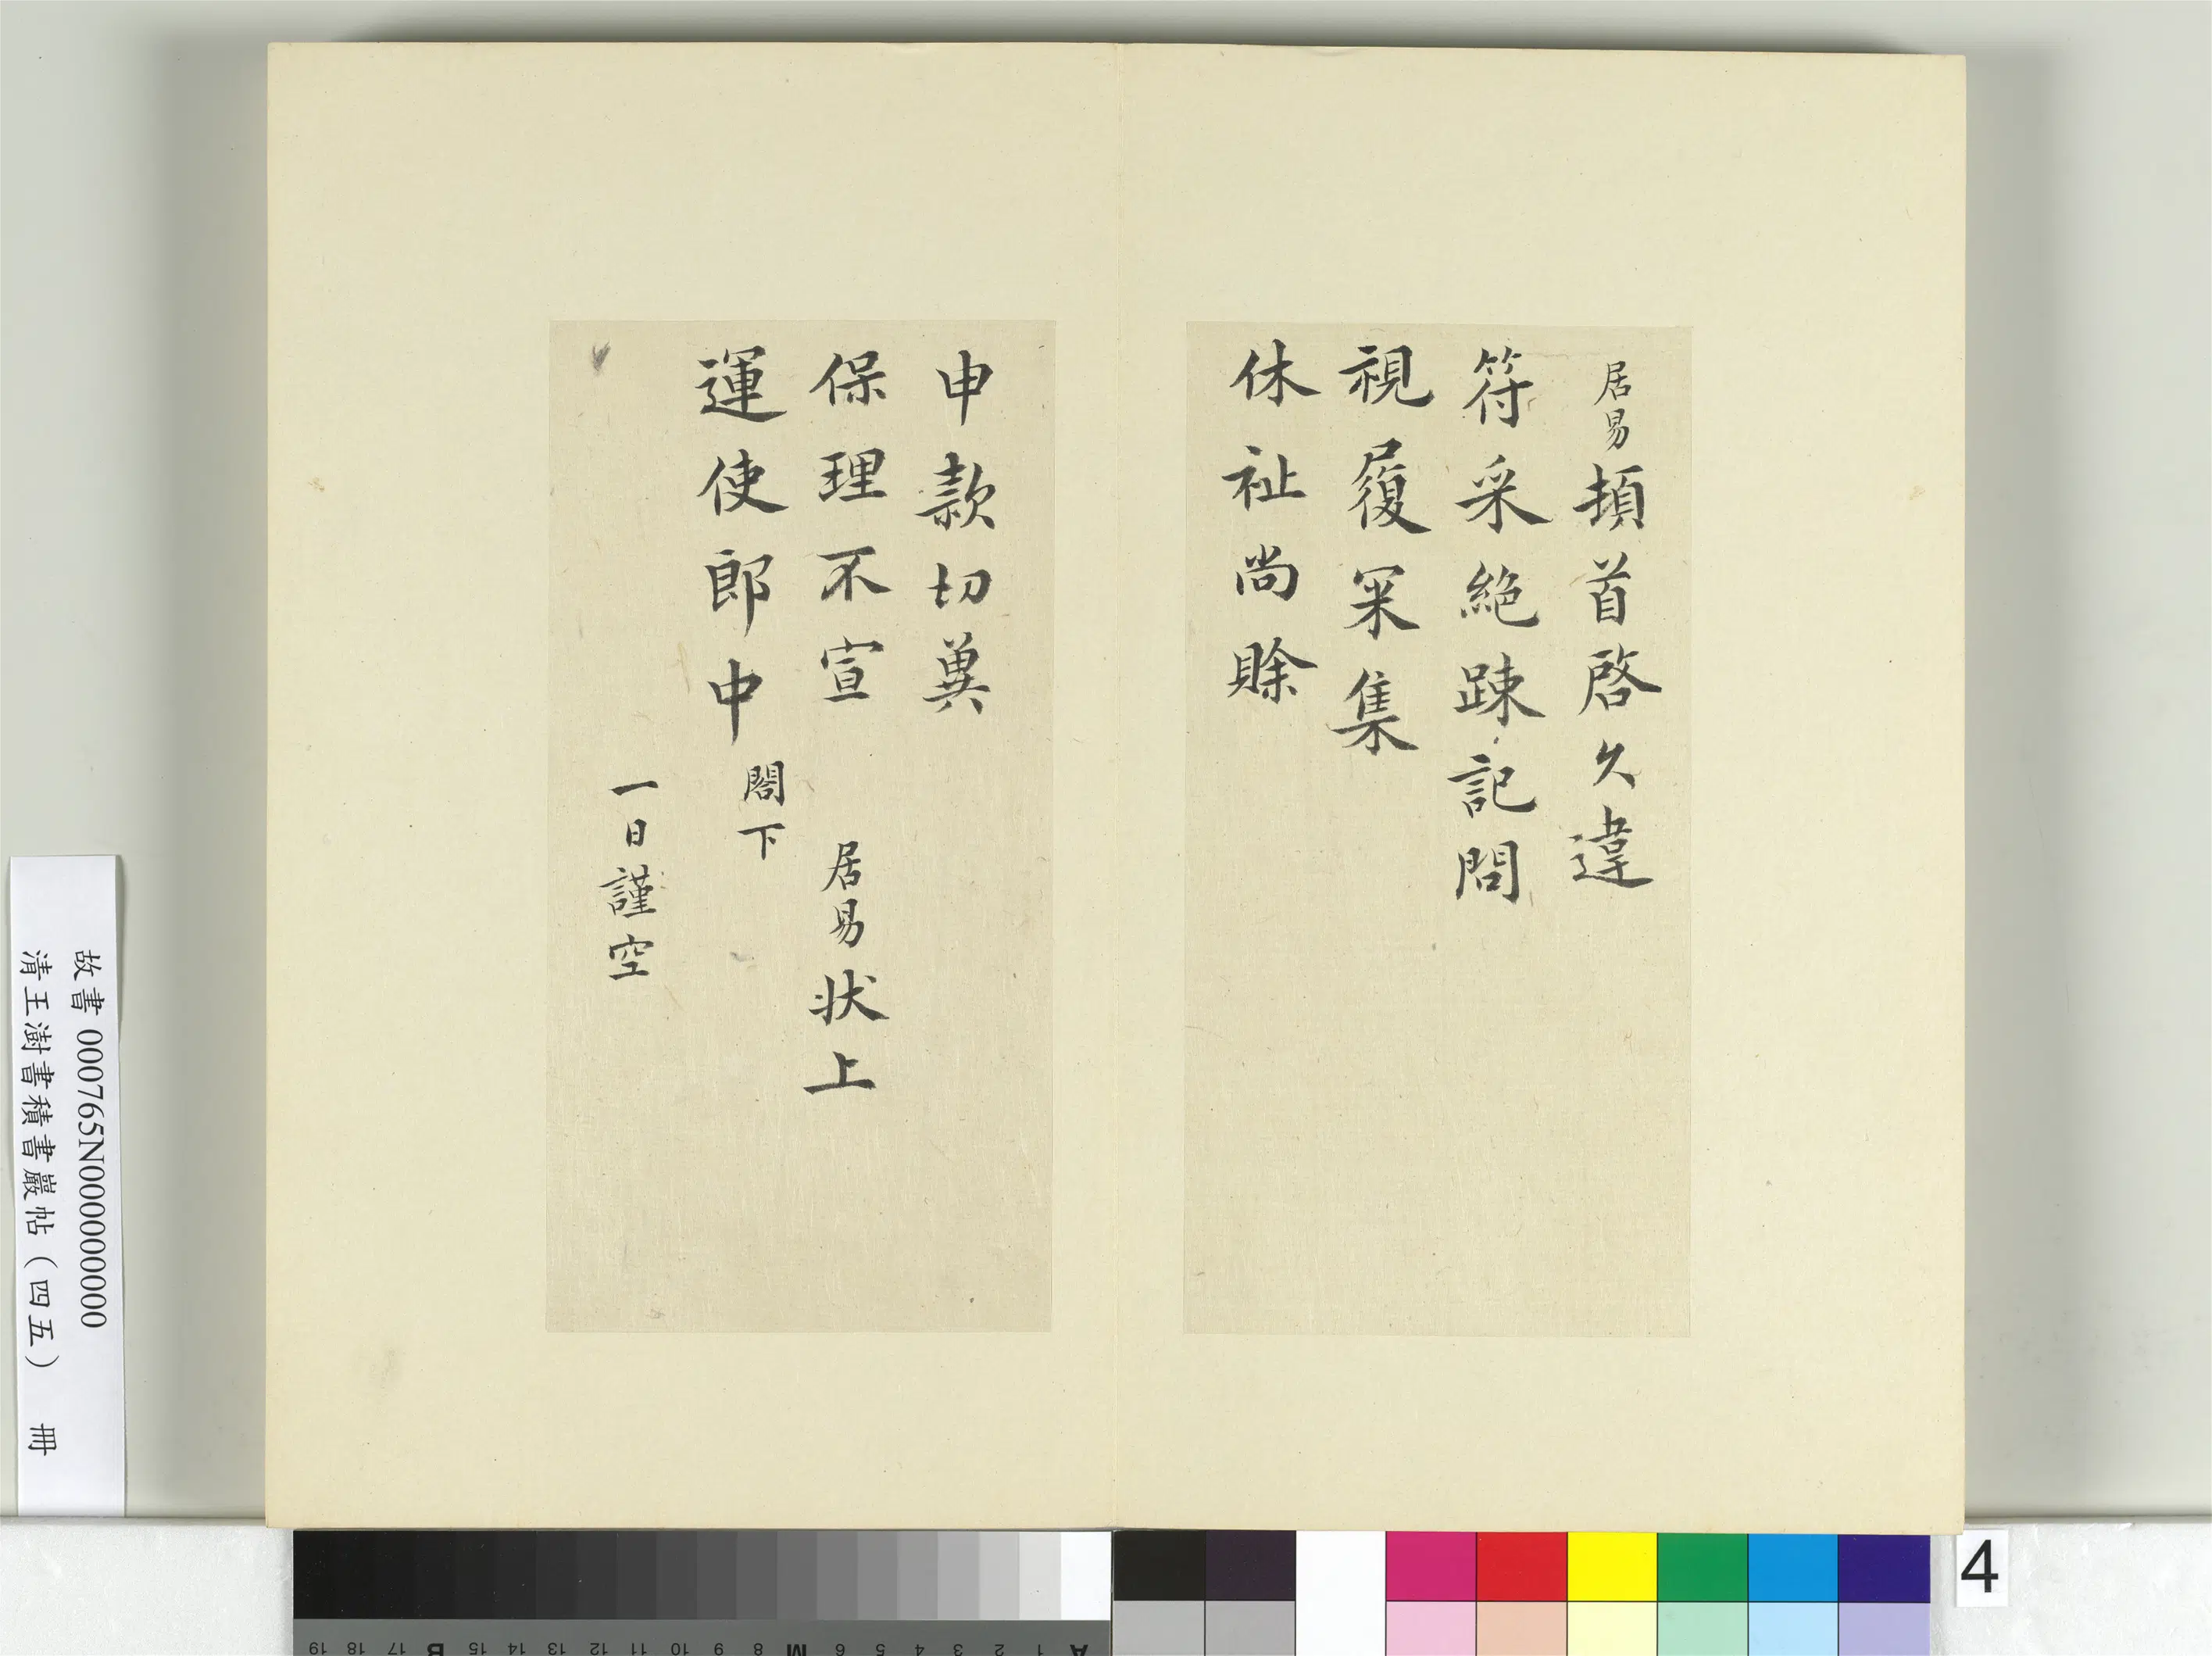 居易頓首啓久違
符采絶踈記問
視履冞集
休祉尚賖
申款切冀
保理不宣 居易狀上
運使郎中 閤下
一日謹空
故書 000765N000000000
清王澍書積書巖帖（四五） 冊
A 1 2 3 4 5 6 M 8 9 10 11 12 13 14 15 B 17 18 19
4